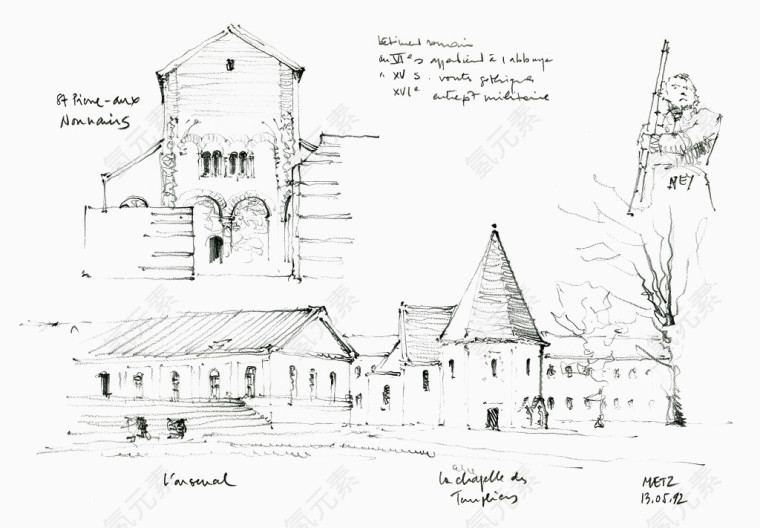 St Pierre-aux
Nonnains
Bâtiment romain
au VIIe s appartient à l'abbaye
" XV s. voute gothique
XVIe entrepôt militaire
NEY
L'arsenal
La chapelle des
Templiers
METZ
13.05.92
氢元素